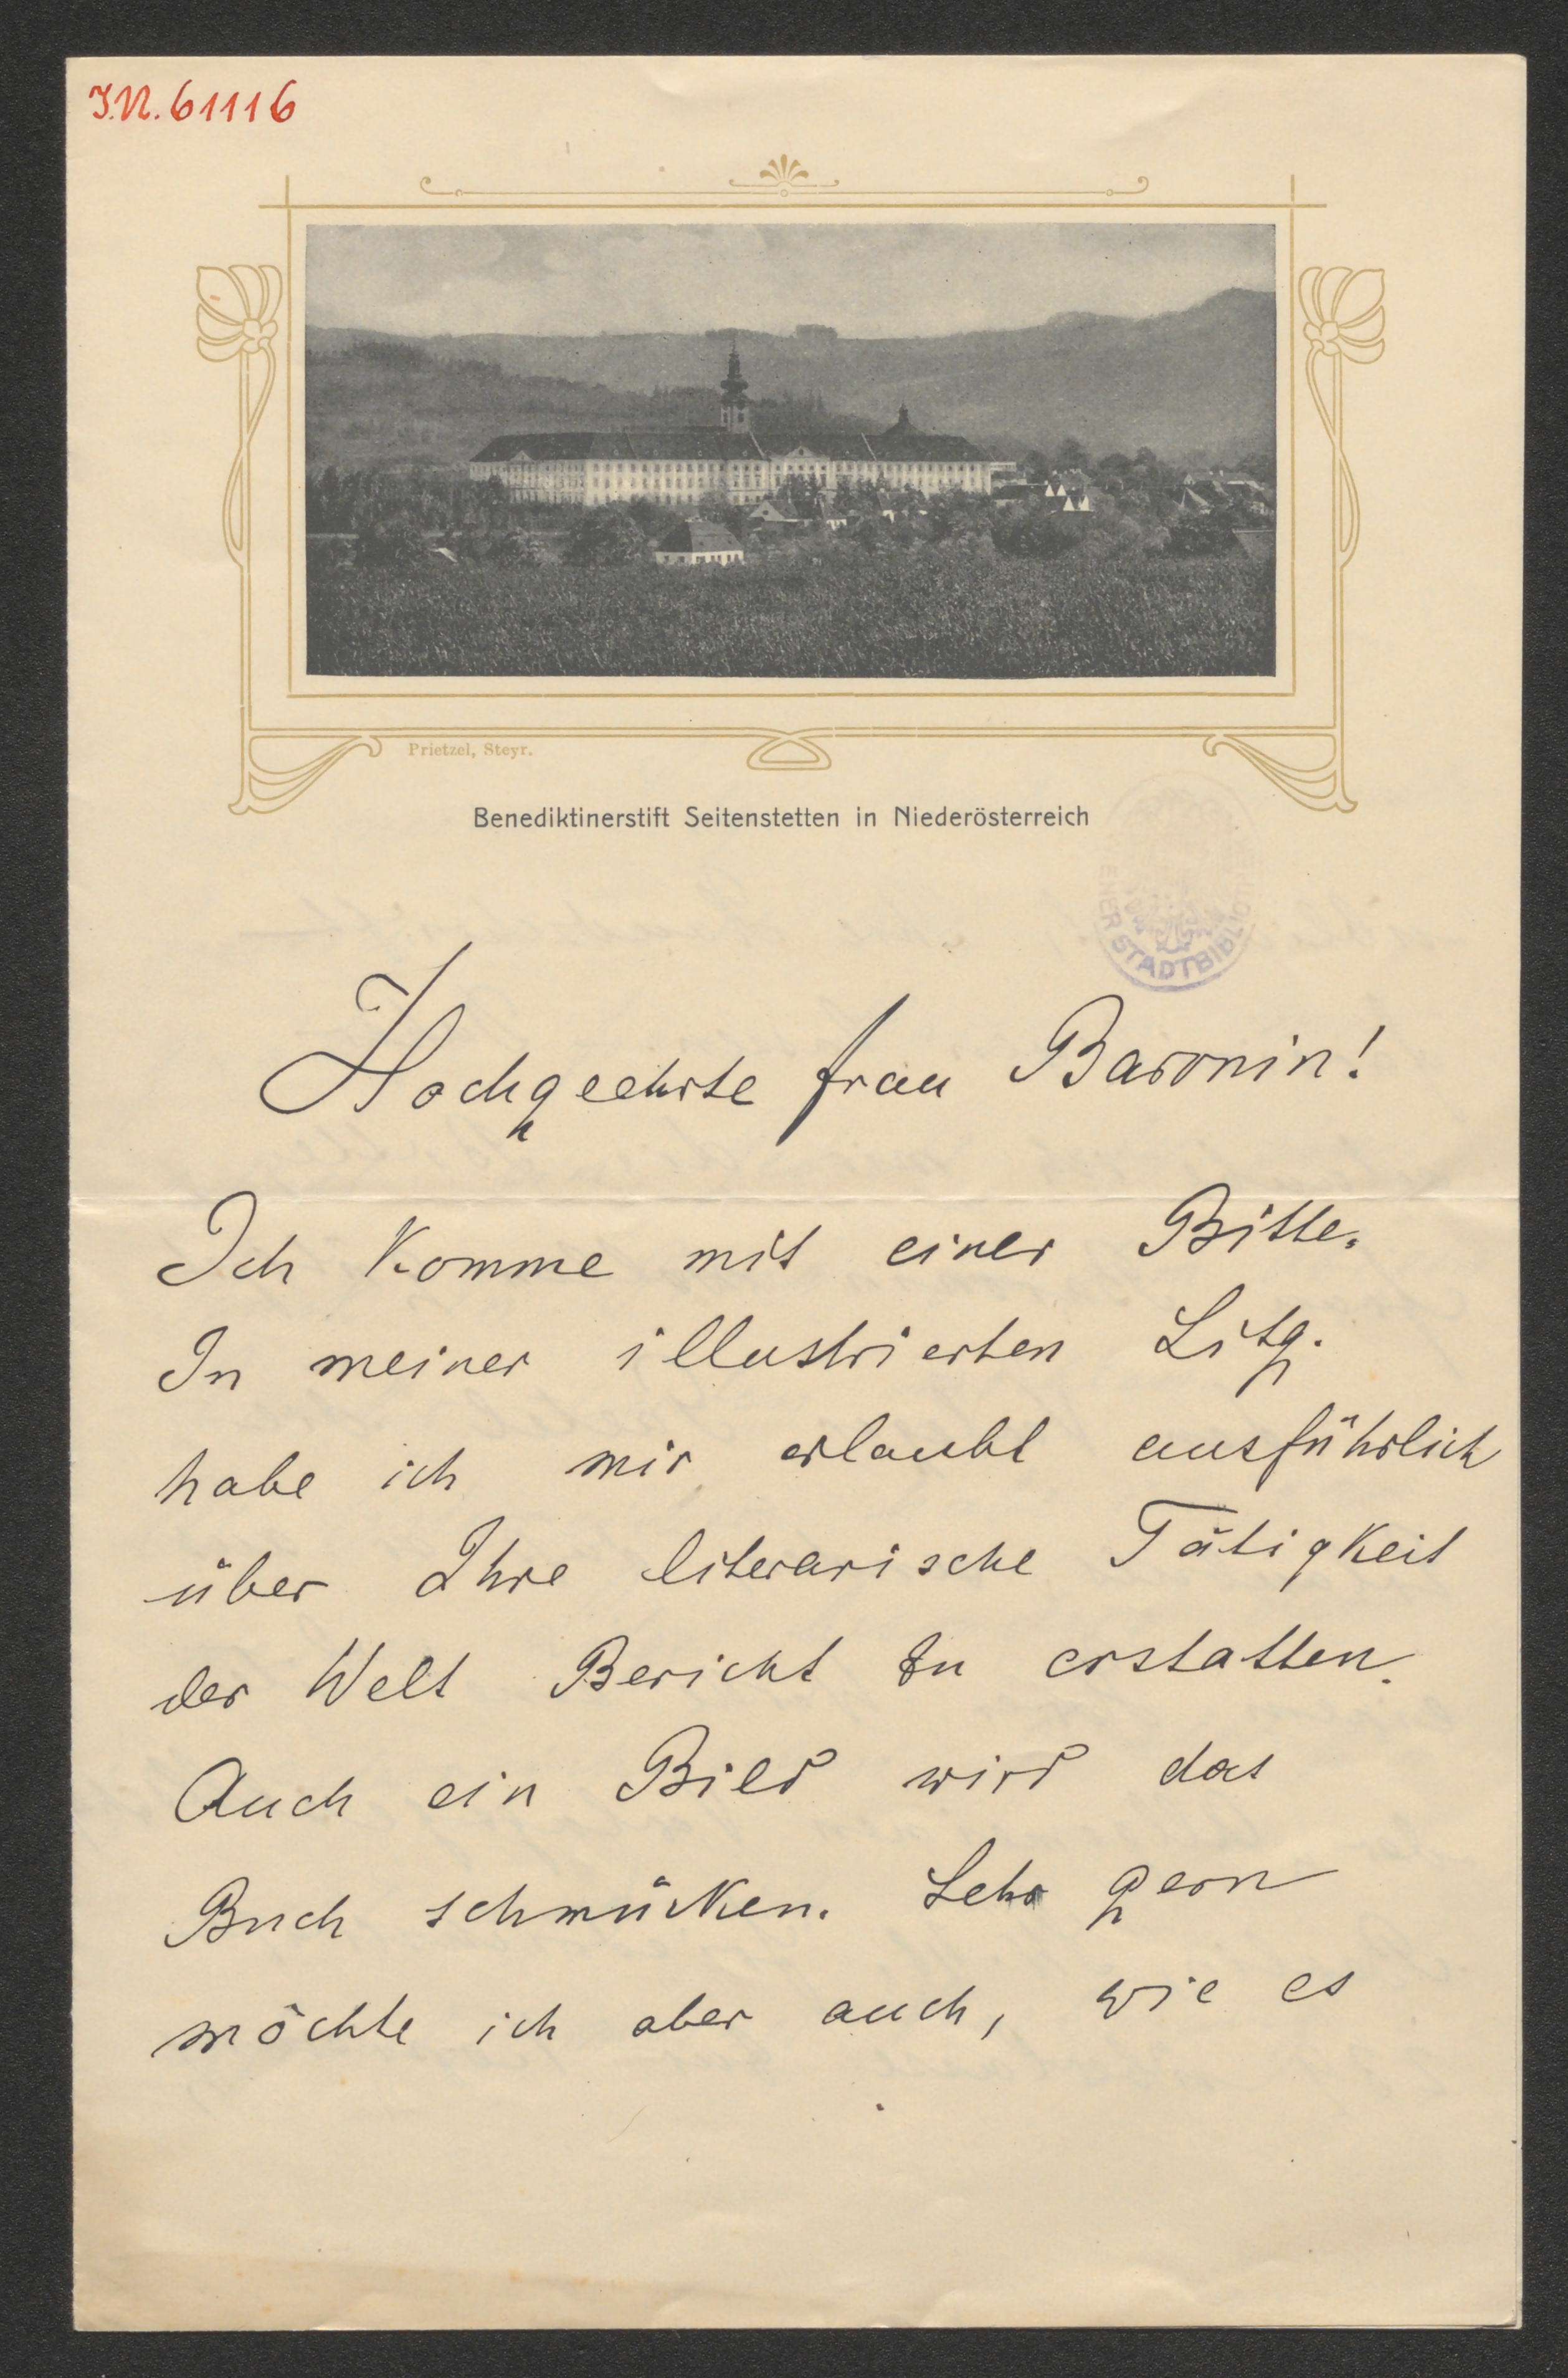 I.N. 61116
Prietzel, Steyr.
Benediktinerstift Seitenstetten in Niederösterreich
WIENER STADTBIBLIOTHEK
Hochgeehrte Frau Baronin!
Ich komme mit einer Bitte.
In meiner illustrierten Litg.
habe ich mir erlaubt ausführlich
über Ihre literarische Tätigkeit
der Welt Bericht zu erstatten.
Auch ein Bild wird das
Buch schmücken. Sehr gern
möchte ich aber auch, wie es